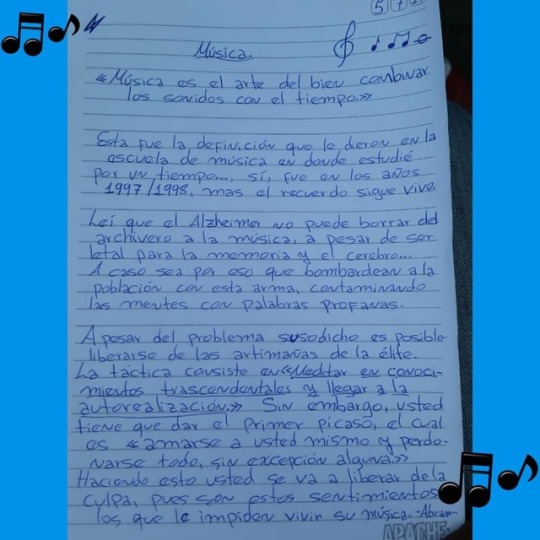 5 7
Música.
«Música es el arte del bien combinar
los sonidos con el tiempo.»
Esta fue la definición que le dieron en la
escuela de música en donde estudié
por un tiempo..., sí, fue en los años
1997/1998, mas el recuerdo sigue vivo.
Leí que el Alzheimer no puede borrar del
archivero a la música, a pesar de ser
letal para la memoria y el cerebro...
A caso sea por eso que bombardean a la
población con esta arma, contaminando
las mentes con palabras profanas.
A pesar del problema susodicho es posible
liberarse de las artimañas de la élite.
La táctica consiste en «Meditar en conoci-
mientos trascendentales y llegar a la
autorealización.» Sin embargo, usted
tiene que dar el primer picaso, el cual
es «amarse a usted mismo y perdo-
narse todo, sin excepción alguna.»
Haciendo esto usted se va a liberar de la
culpa, pues son estos sentimientos
los que le impiden vivir su música. -Abram-
APACHE